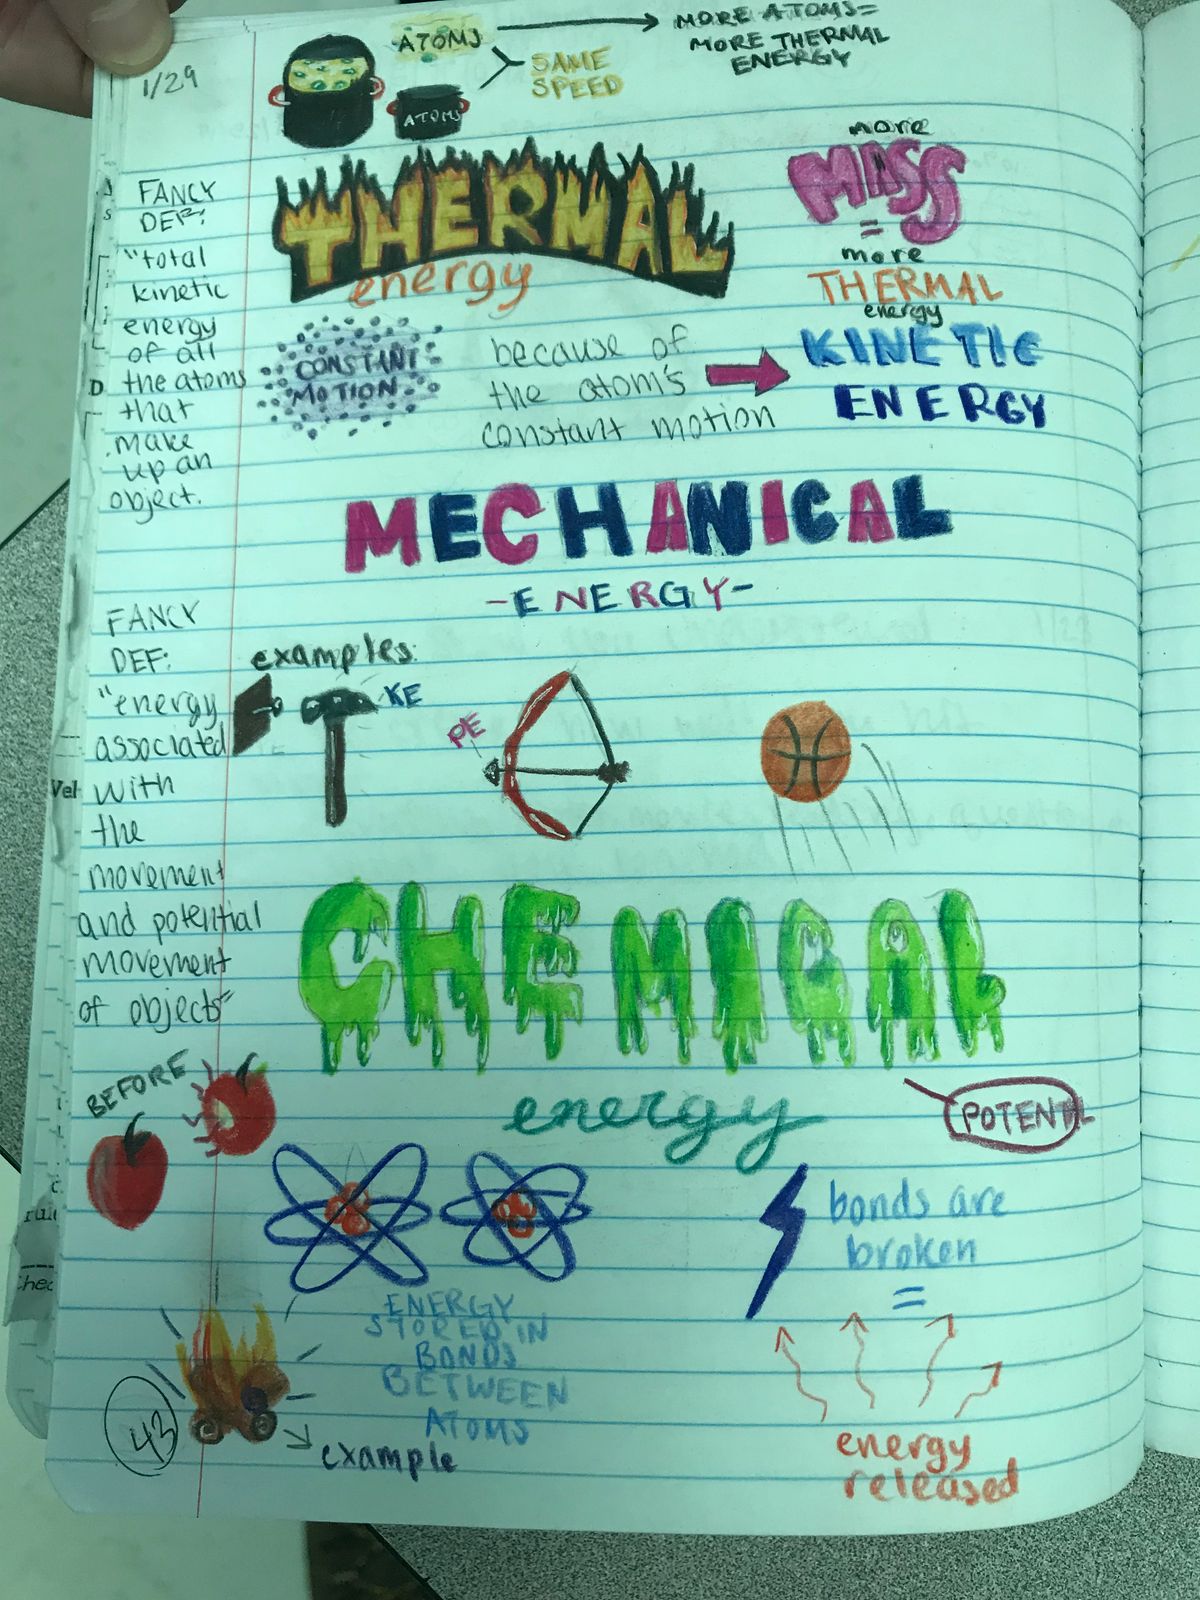 1/29
ATOMS
MORE ATOMS=
MORE THERMAL
ENERGY
SAME
SPEED
ATOMS
THERMAL
energy
more
MASS
=
more
THERMAL
energy
FANCY
DEF:
"total
kinetic
energy
of all
the atoms
that
make
up an
object.
CONSTANT
MOTION
because of
the atom's
constant motion
KINETIC
ENERGY
MECHANICAL
-ENERGY-
FANCY
DEF:
"energy
associated
with
the
movement
and potential
movement
of objects"
examples:
KE
PE
CHEMICAL
energy
POTENTL
BEFORE
ENERGY
STORED IN
BONDS
BETWEEN
ATOMS
bonds are
broken
=
energy
released
example
43
Vel